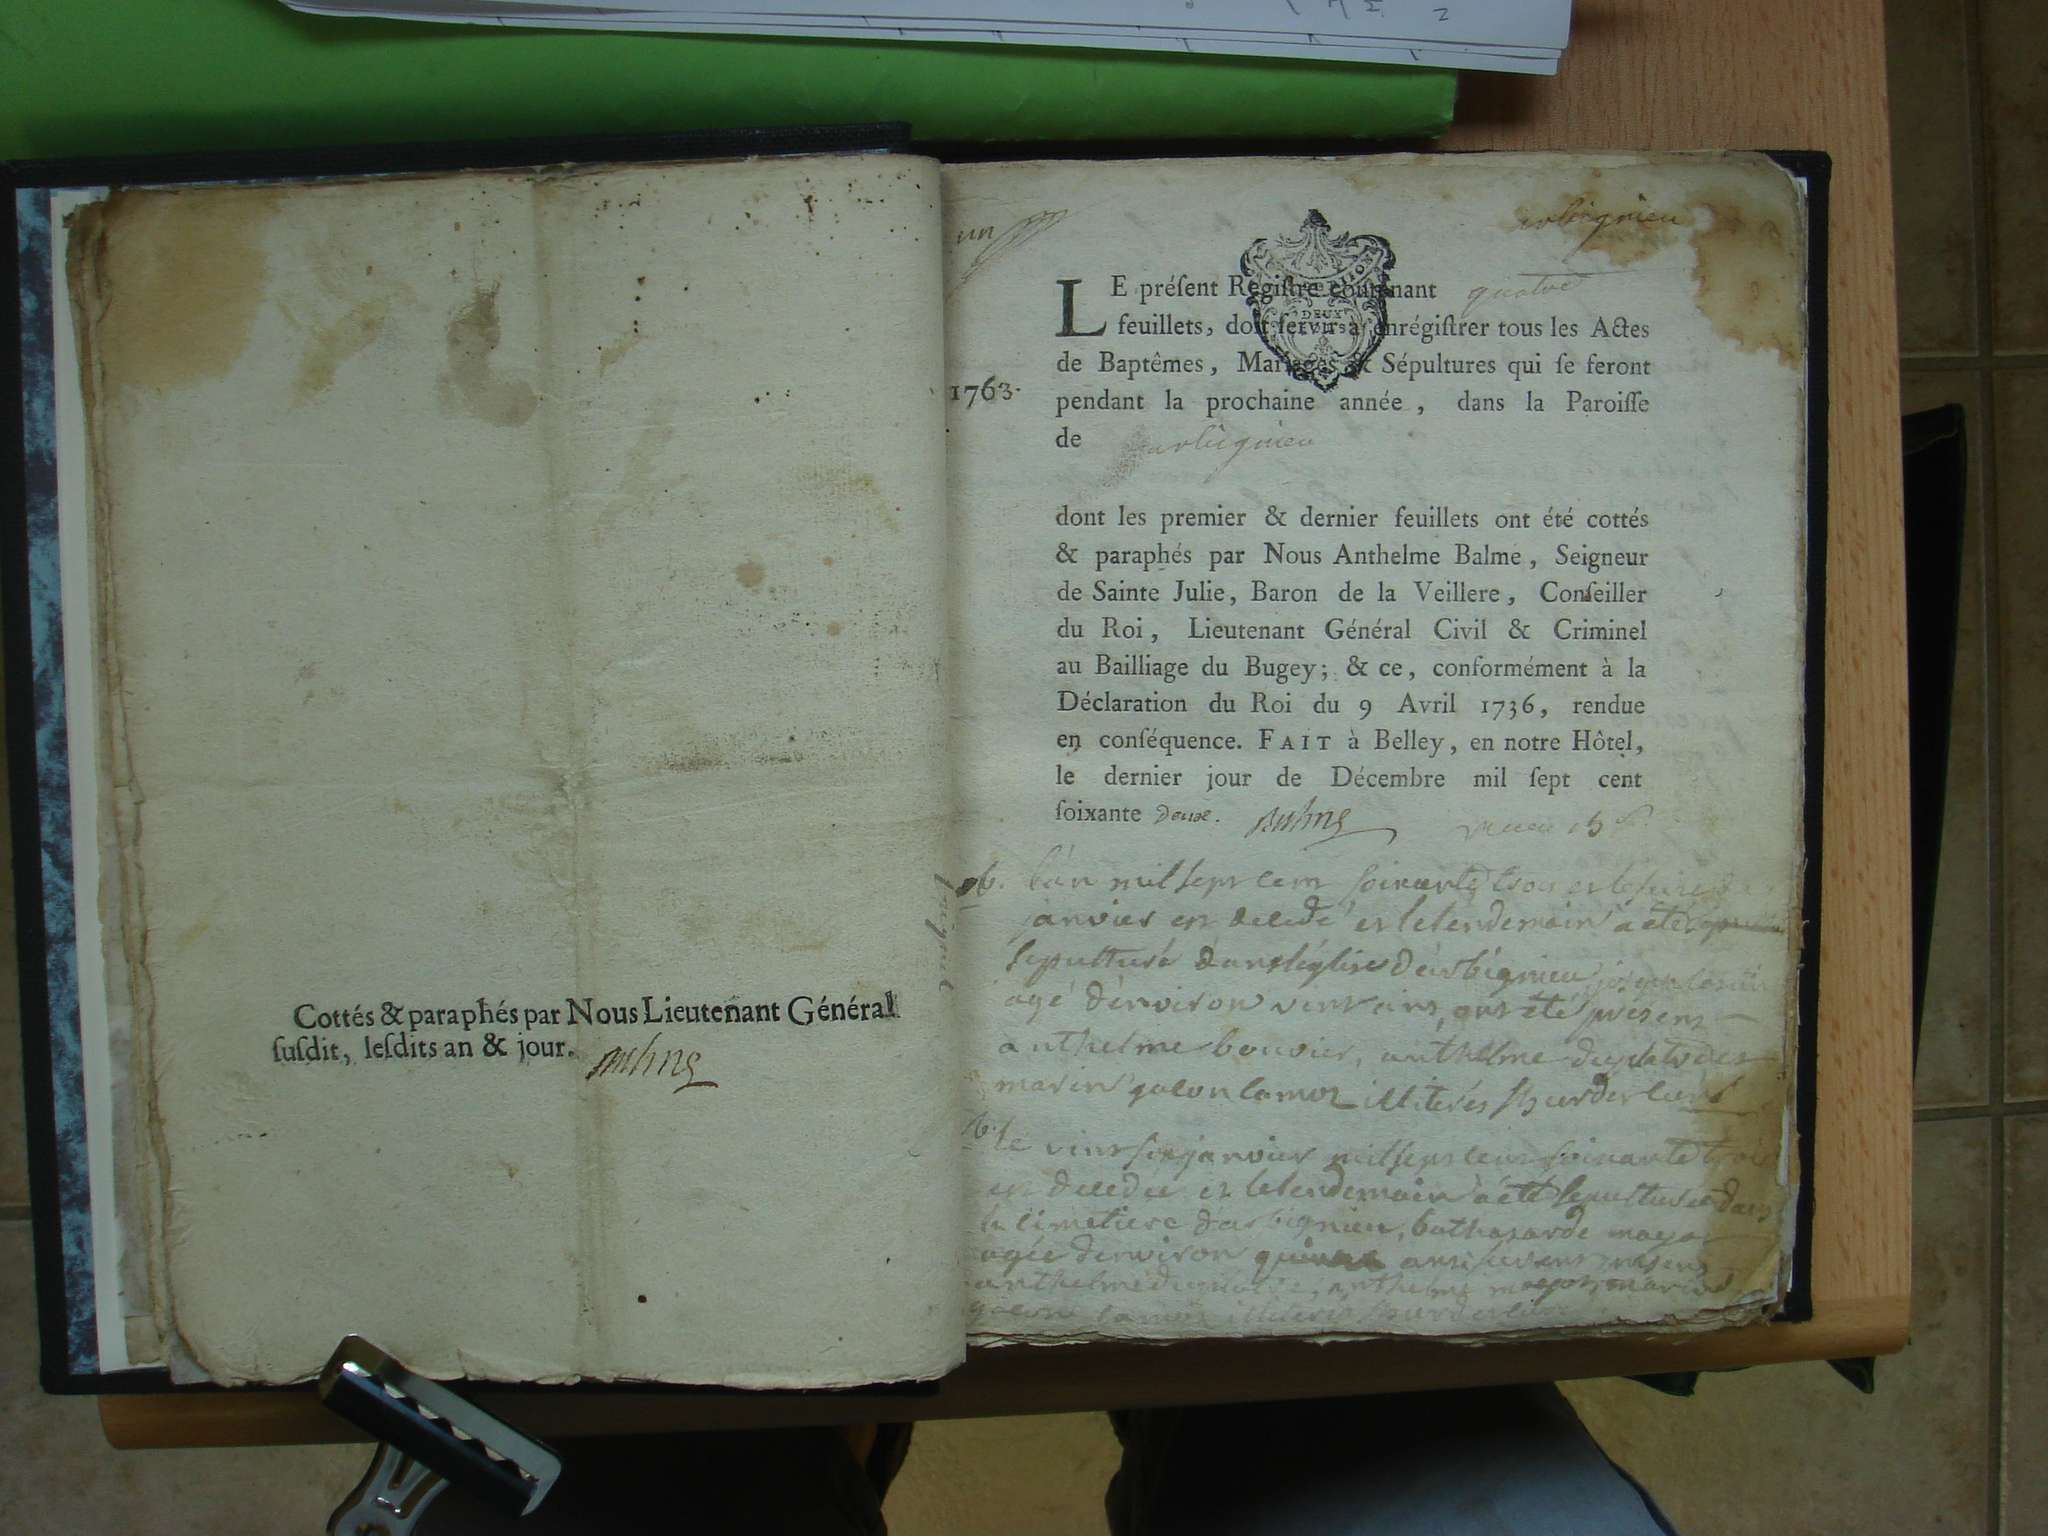 Cottés & paraphés par Nous Lieutenant Général
ſuſdit, leſdits an & jour.
un
arbignieu
LE préſent Regiſtre contenant quatre
feuillets, doit ſervir à enrégiſtrer tous les Actes
de Baptêmes, Mariages & Sépultures qui ſe feront
1763.
pendant la prochaine année, dans la Paroiſſe
de arbignieu
dont les premier & dernier feuillets ont été cottés
& paraphés par Nous Anthelme Balme, Seigneur
de Sainte Julie, Baron de la Veillere, Conſeiller
du Roi, Lieutenant Général Civil & Criminel
au Bailliage du Bugey; & ce, conformément à la
Déclaration du Roi du 9 Avril 1736, rendue
en conſéquence. FAIT à Belley, en notre Hôtel,
le dernier jour de Décembre mil ſept cent
ſoixante deux.
DEUX
L'an mil sept cent soixante trois et le
janvier est decedé et le lendemain a eté
sepulturé dans l'église d'arbignieu
agé d'environ vint ans, ont été présens
anthelme bouvier, anthelme
marin galon lamoz illiterés
le vint six janvier mil sept cent soixante trois
est decedee et le lendemain a eté sepulturee dans
le cimetiere d'arbignieu, bathazarde
agée d'environ ans presens
anthelme anthelme marin
galon lamoz illiterés